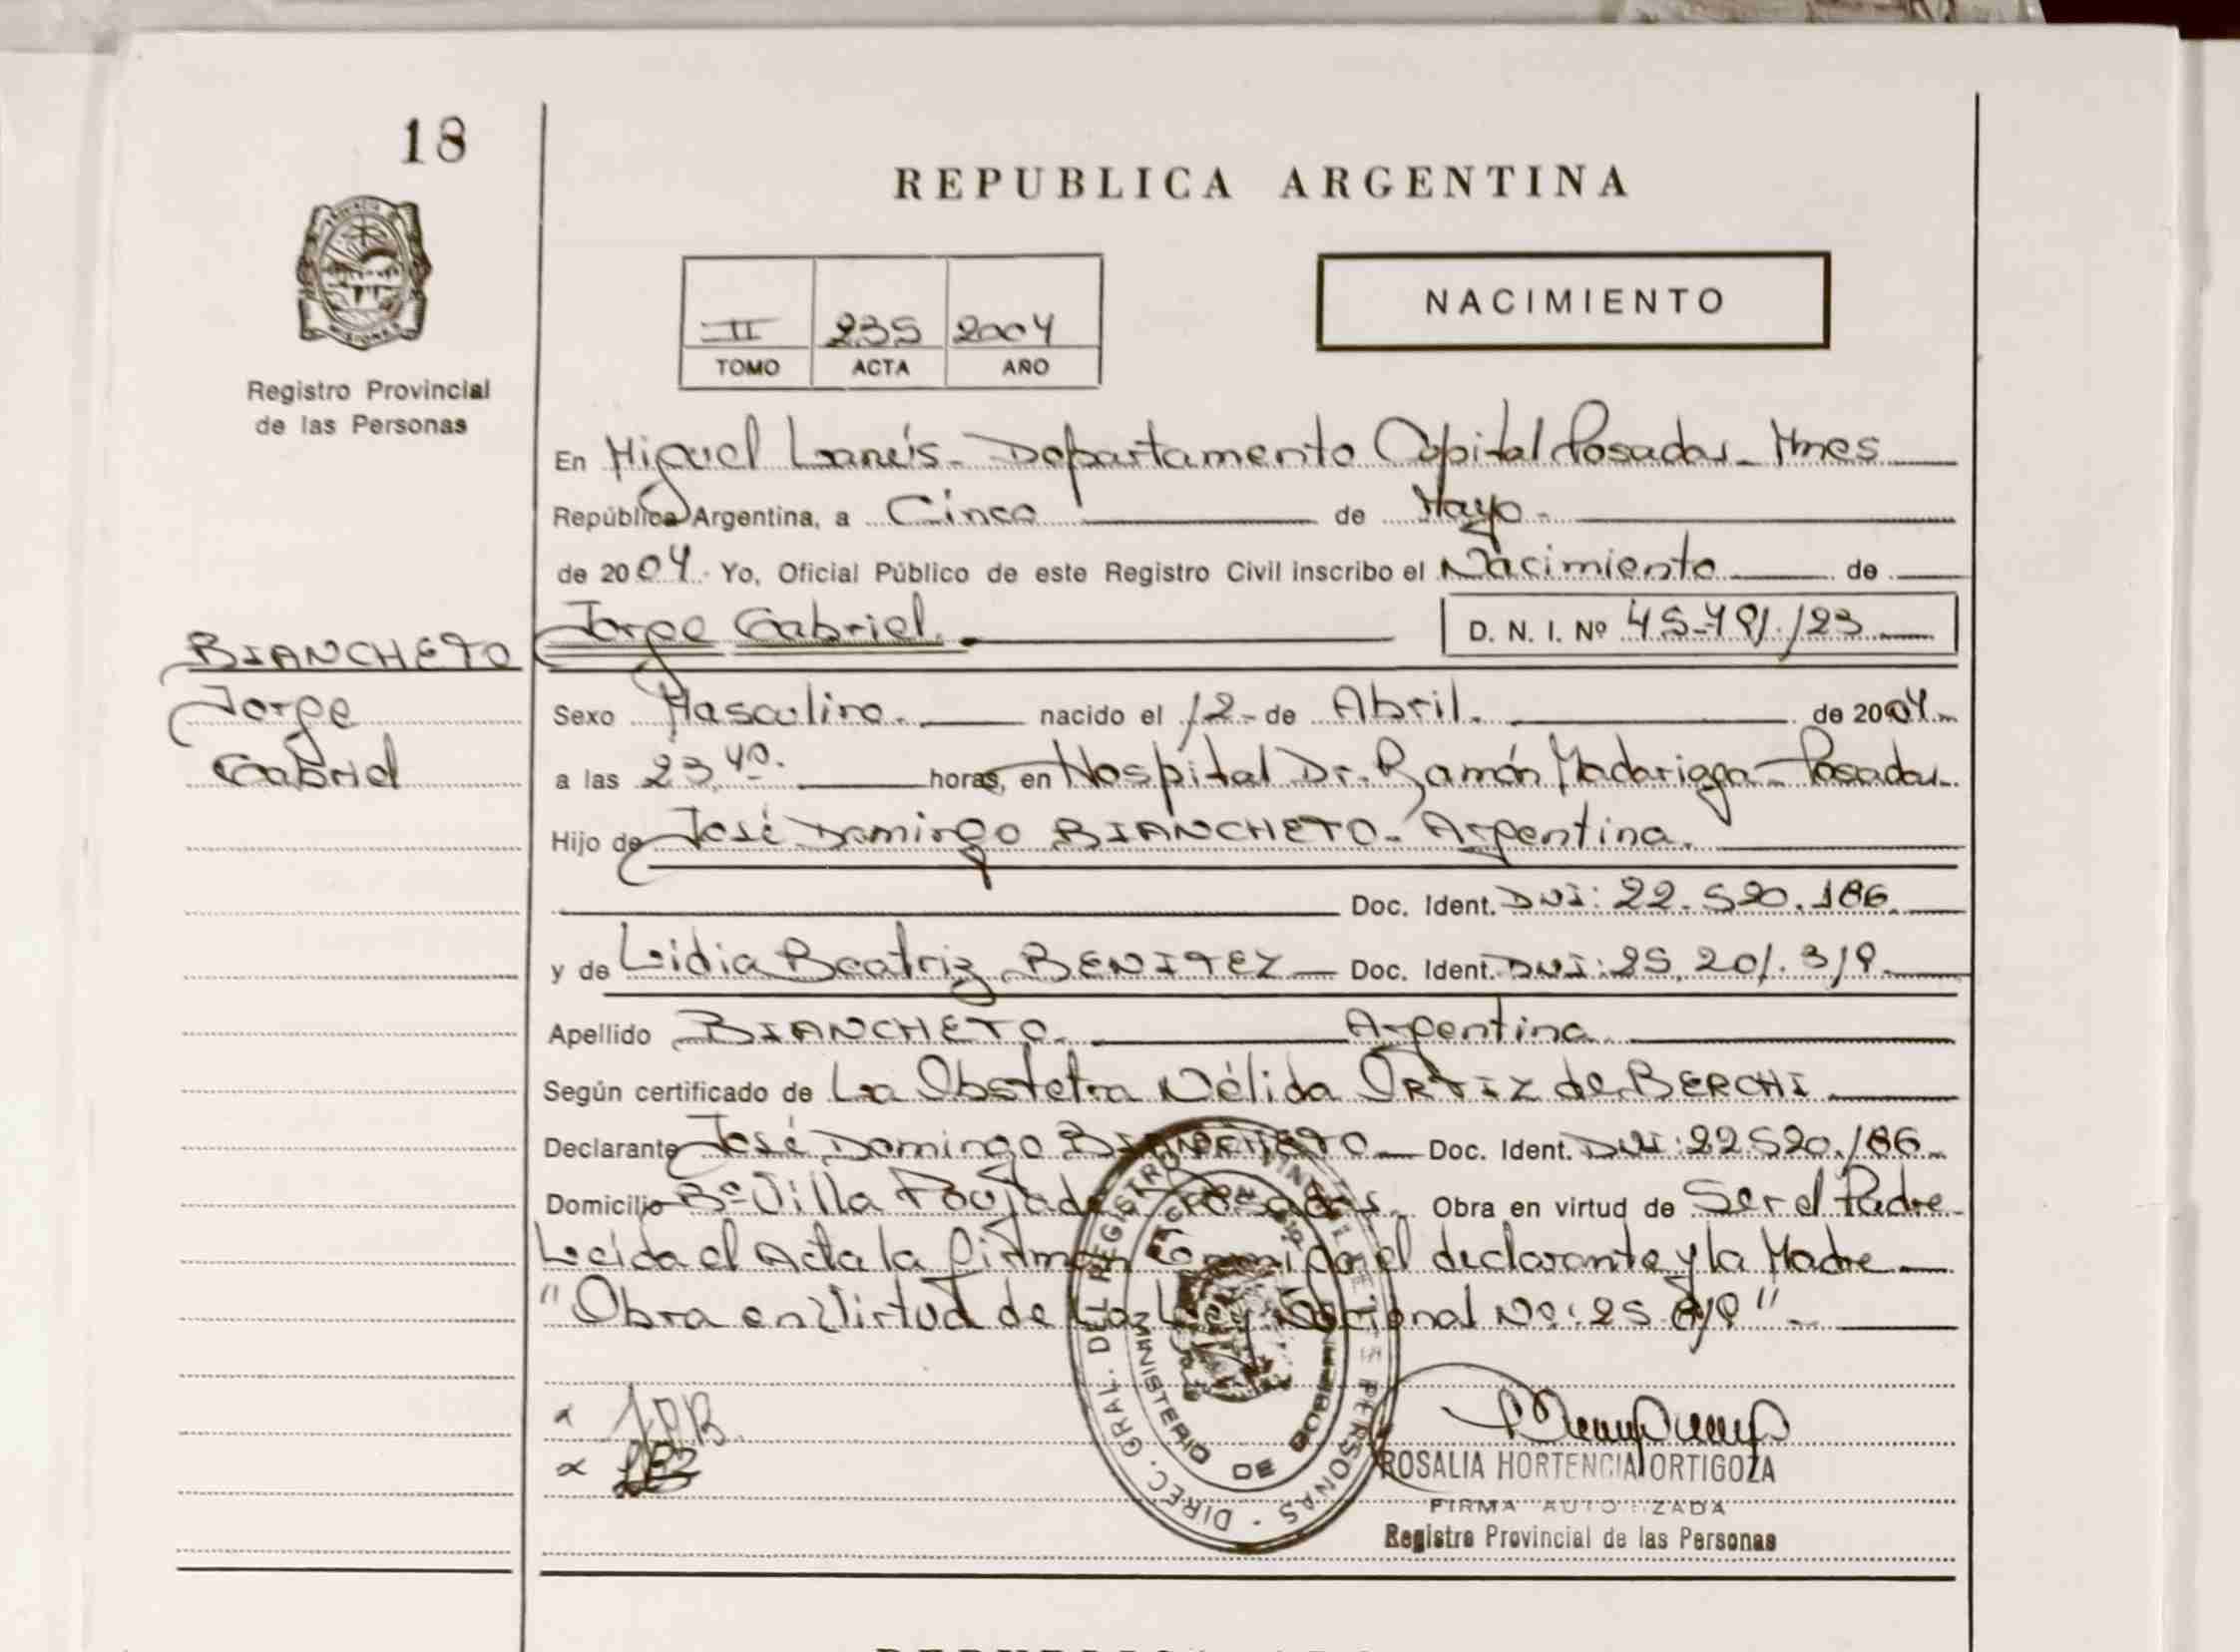 18
REPUBLICA ARGENTINA
NACIMIENTO
II 235 2004
TOMO ACTA AÑO
Registro Provincial
de las Personas
En Miguel Lanús - Departamento Capital Posadas - Mnes
República Argentina, a Cinco de Mayo -
de 2004. Yo, Oficial Público de este Registro Civil inscribo el Nacimiento de
Jorge Gabriel. D. N. I. Nº
BIANCHETO
Jorge
Gabriel
Sexo Masculino. nacido el 12 - de Abril. de 2004.
a las 23,40. horas, en Hospital Dr. Ramón Madariaga - Posadas.
Hijo de José Domingo BIANCHETO - Argentina.
Doc. Ident. DNI: 22.520.186.
y de Lidia Beatriz BENITEZ Doc. Ident. DNI: 25.201.319.
Apellido BIANCHETO. Argentina.
Según certificado de La Obstetra Nélida ORTIZ de BERCHI
Declarante José Domingo BIANCHETO Doc. Ident. DNI: 22520.186.
Domicilio Bº Villa Poujade Posadas. Obra en virtud de Ser el Padre.
Leída el Acta la firman Conmigo el declarante y la Madre
"Obra en Virtud de La Ley Nacional Nº: 25.819" -
JDB
LBB
DIREC. GRAL. DEL REGISTRO PROVINCIAL DE LAS PERSONAS
MINISTERIO DE GOBIERNO
ROSALIA HORTENCIA ORTIGOZA
FIRMA AUTORIZADA
Registro Provincial de las Personas